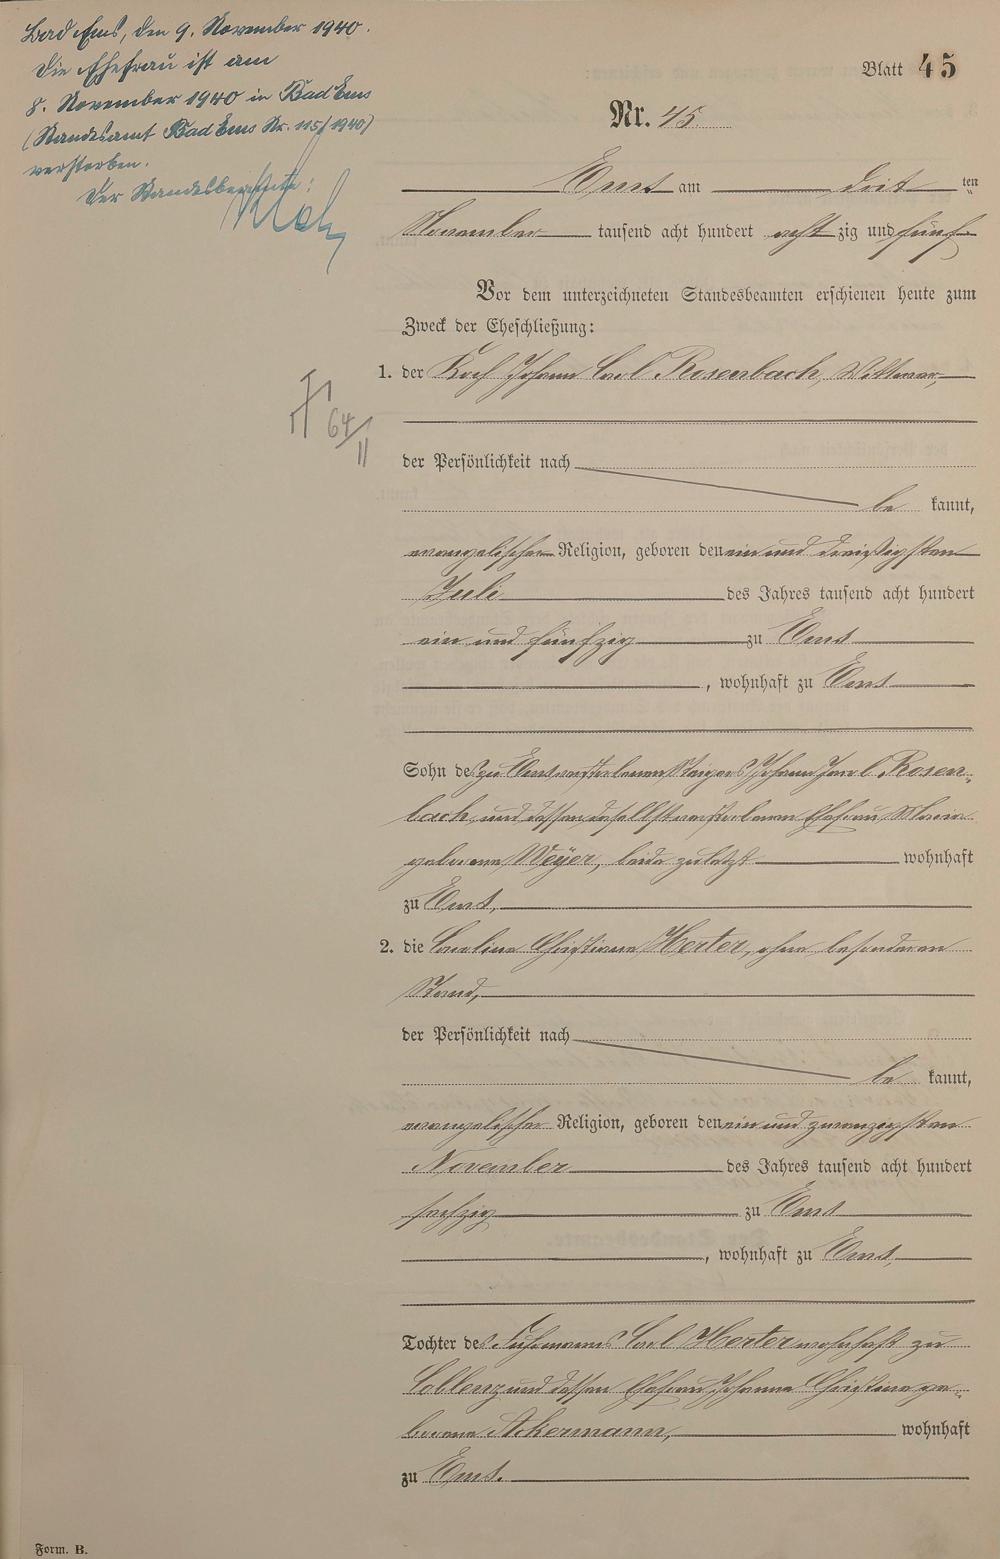 Bad Ems, den 9. November 1940.
Die Ehefrau ist am
8. November 1940 in Bad Ems
(Standesamt Bad Ems Nr. 115/1940)
verstorben.
Der Standesbeamte:
Blatt 45
Nr. 45
Ems am dritten
November tausend acht hundert achtzig und fünf
Vor dem unterzeichneten Standesbeamten erschienen heute zum
Zweck der Eheschließung:
1. der Koch Johann Carl Rosenbach, Wittwer,
64/11
der Persönlichkeit nach
bekannt,
evangelischer Religion, geboren den ein und dreißigsten
Juli des Jahres tausend acht hundert
ein und fünfzig zu Ems
, wohnhaft zu Ems
Sohn des zu Ems verstorbenen Steigers Johann Rosen-
bach, und dessen daselbst verstorbenen Ehefrau, Maria
geborene Weyer, beide zuletzt wohnhaft
zu Ems,
2. die Caroline Christiane Herter, ohne besonderen
Stand,
der Persönlichkeit nach
bekannt,
evangelischer Religion, geboren den ein und zwanzigsten
November des Jahres tausend acht hundert
sechzig zu Ems
, wohnhaft zu Ems,
Tochter des Fuhrmanns Carl Herter wohnhaft zu
Coblenz und dessen Ehefrau Johanna Christine ge-
borene Ackermann, wohnhaft
zu Ems.
Form. B.